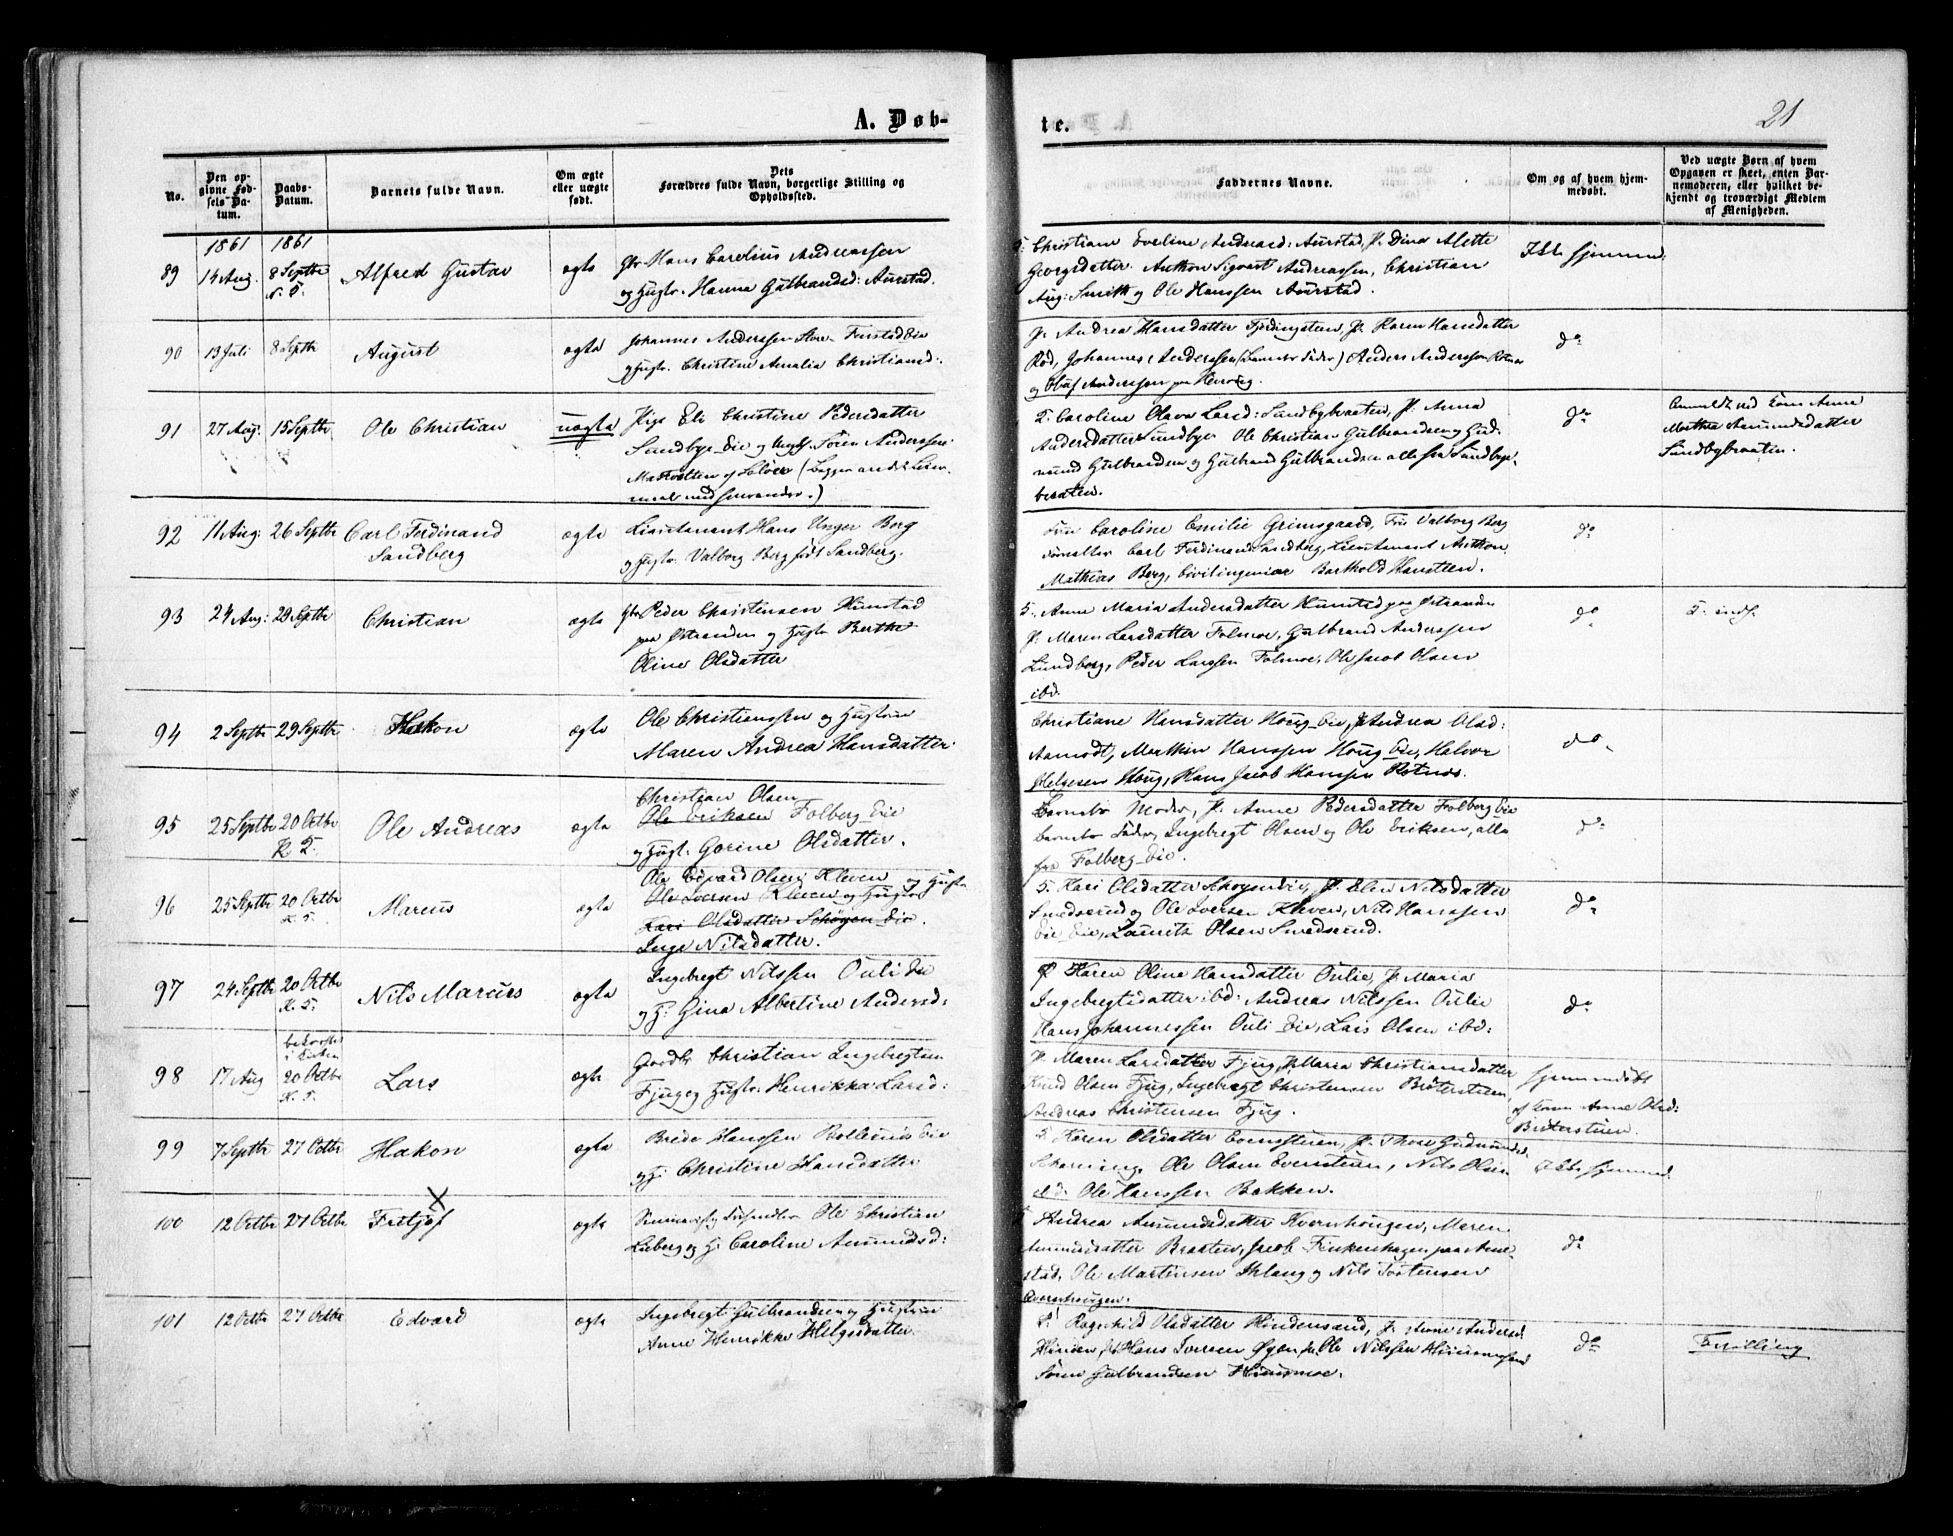 A. Døb-
te.
21
No.
Den op-
givne Fød-
sels Da-
tum.
Daabs-
Datum.
Barnets fulde Navn.
Om ægte
eller uægte
født.
Dets
Forældres fulde Navn, borgerlige Stilling og
Opholdssted.
Faddernes Navne.
Om og af hvem hjem-
medøbt.
Ved uægte Børn af hvem
Opgaven er skeet, enten Bar-
nemoderen, eller hvilket be-
kjendt og troværdigt Medlem
af Menigheden.
1861
1861
89
14 Aug.
8 Septbr
Alfred Gustav
ægte
Gbr Hans Carelius Andreassen
og Hustr. Hanna Gulbrandsd: Aurstad.
Christiane Eveline Andreasd: Aurstad, P. Dina Alette
Georgsdatter. Anthon Sigvart Andreassen, Christian
Aug: Smith og Ole Hanssen Aurstad.
Ikke hjemmed:
90
13 Juli
8 Septbr
August
ægte
Johannes Anderssen Store-
og Hustr. Christine Amalia Christiansd:
P. Andrea Hansdatter Fjerdingsteen, P. Karen Hansdatter
Rød, Johannes Anderssen (Barnets Fader) Anders Anderssen
og Oluf Anderssen
do
91
27 Aug:
15 Septbr
Ole Christian
uægte
Pige Eli Christine Pedersdatter
Sandbye Eie og Ungk. Søren Anderssen
P. Caroline Olava Larsd: Sandbybraaten, P. Anna
Andersdatter Sandbye Ole Christian Gulbrandsen og Gud-
mund Gulbrandsen og Gulbrand Gulbrandsen alle fra Sandbye-
braaten.
do
Anmeldt ved Kone Anne
Marthea Aamundsdatter
Sandbybraaten.
92
11 Aug:
26 Septbr
Carl Ferdinand
Sandberg
ægte
Lieutenant Hans Unger Berg
og Hustr. Valborg Berg, født Sandberg.
Frue Caroline Emilie Grimsgaard, Frue Valborg Berg
Carl Ferdinand Sandberg, Lieutenant Anthon
Mathias Berg, Civilingeniør Barthold Hansteen.
do
93
24 Aug:
29 Septbr
Christian
ægte
Gbr Peder Christensen Kunstad
paa Østranden og Hustr Berthe
Oline Olsdatter
Anne Maria Andersdatter Kunstad paa Østranden
P. Maren Larsdatter Folmoe, Gulbrand Anderssen
Lundberg, Peder Larssen Folmoe, Ole Jacob Olsen
ibd.
do
94
2 Septbr
29 Septbr
Hakon
ægte
Ole Christianssen og Hustruen
Maren Andrea Hansdatter.
Christiane Hansdatter Houg Eie, P. Andrea Olsd:
Aamodt, Marthin Hanssen Houg Eie, Halvor
Helgesen Houg, Hans Jacob Hanssen Rotnæs.
do
95
25 Septbr
20 Octbr
Ole Andreas
ægte
Christian Olsen
Ole Eriksen Folberg Eie
og Hust. Gorine Olsdatter.
Barnets Moder, P. Anne Pedersdatter Folberg Eie
Barnets Fader, Ingebregt Olsen og Ole Eriksen, alle
fra Folberg Eie.
do
96
25 Septbr
20 Octbr
Marcus
ægte
Ole Edvard Olsen Kleven og Hustr
Ole Iversen Kleven og Hustr
Kari Olsdatter Schøyen Eie.
Inge Nilsdatter.
Kari Olsdatter Schøyen Eie, P. Elen Nilsdatter
Smedsrud og Ole Iversen Kleven, Nils Hanssen
Eie, Lauritz Olsen Smedsrud.
do
97
24 Septbr
20 Octbr
Nils Marcus
ægte
Ingebregt Nilssen Ouli Eie
og H: Gina Albertine Andersd:
Karen Oline Hansdatter Oulie, P. Maria
Ingebregtsdatter ibd: Andreas Nilssen Oulie
Hans Johannessen Ouli Eie, Lars Olsen ibd:
do
98
17 Aug
20 Octbr
Lars
ægte
Gaardbr Christian Ingebregtsen
Fjug og Hustr: Henrikka Larsd:
P. Maren Larsdatter Fjug, P. Maria Christiansdatter
Knud Olsen Fjug, Ingebregt Christensen
Andreas Christensen Fjug.
Hjemmedøbt
af Konen Anne Olsd:
99
7 Septbr
27 Octbr
Hakon
ægte
Brede Hanssen Eie
og H: Christine Hansdatter
Karen Olsdatter Evensteien, P. Thore Gudmundsd.
Ole Olsen Evensteien, Nils Olsen
Ole Hanssen Bakken.
Ikke hjemmed
100
12 Octbr
27 Octbr
Fretjof X
ægte
Ole Christian
Lieberg og H: Caroline Amundsd:
Andrea Amundsdatter Kvernhougen, Maren
Amundsdatter Braaten, Jacob Finkenhagen
Ole Martensen Schlang og Nils Torstensen
Qvernhougen.
do
101
12 Octbr
27 Octbr
Edvard
ægte
Ingebregt Gulbrandsen og Hustruen
Anne Henrikke Helgesdatter.
Ragnhild Olsdatter P. Anne Andersd
Hans Iversen Ole Nilssen
Søren Gulbrandsen
do
Tvilling